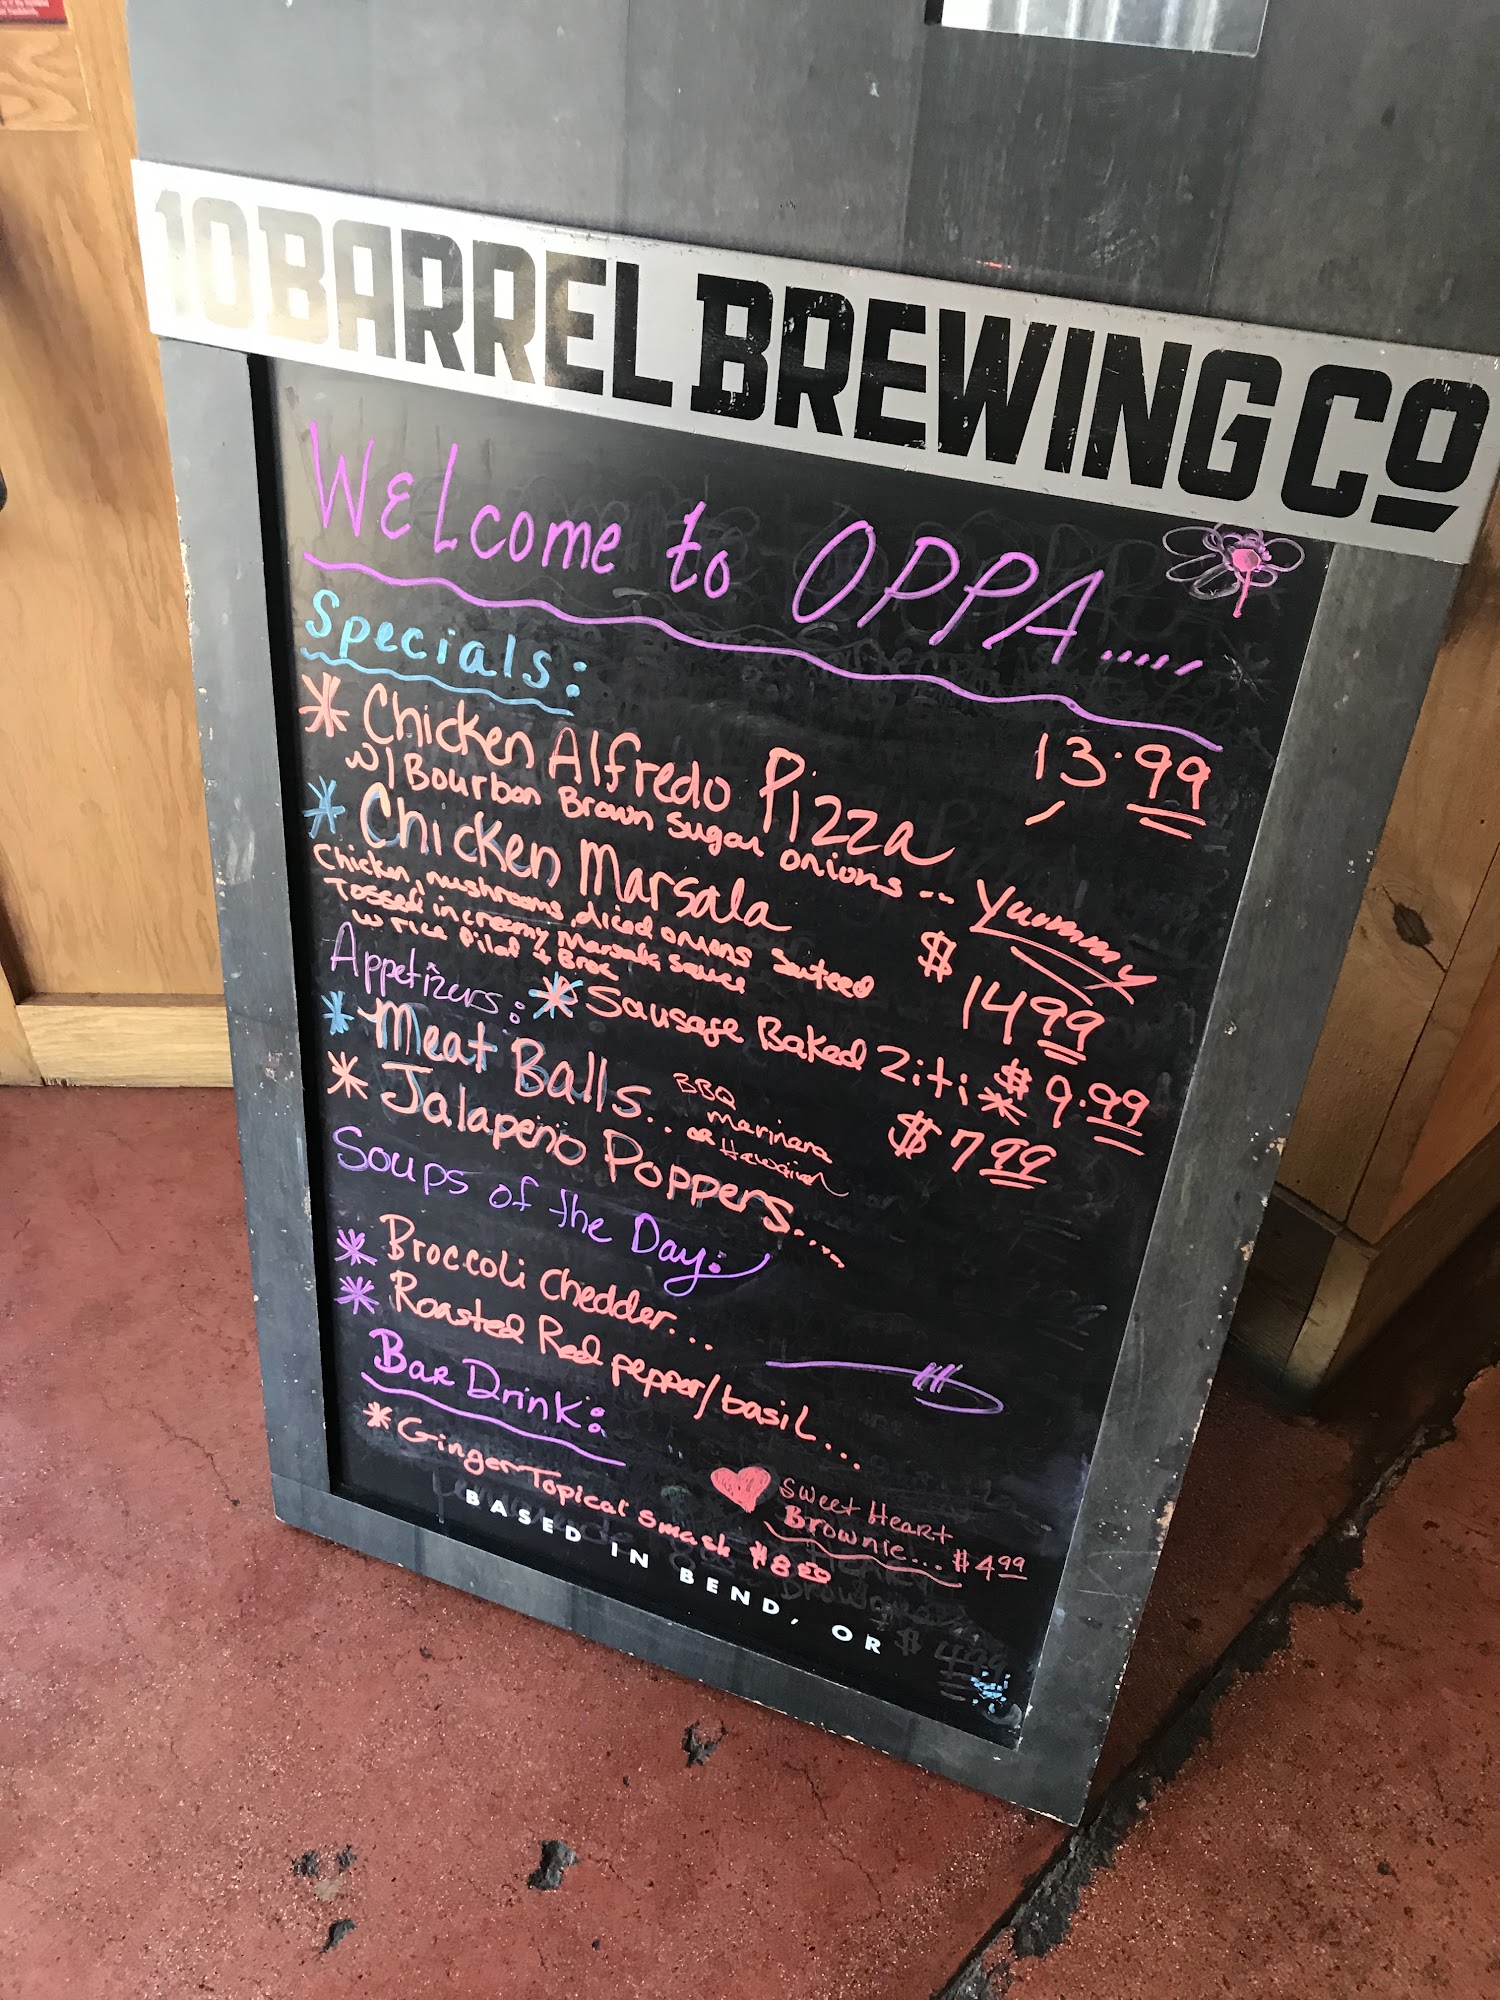 10 BARREL BREWING CO
Welcome to OPPA.....
Specials:
* Chicken Alfredo Pizza 13.99
w/ Bourbon Brown Sugar onions .. Yummy
* Chicken Marsala $ 14 99
Chicken, mushrooms, diced onions Sauteed
Tossed in creamy Marsala Sauce
w rice Pilaf & Broc
* Sausage Baked Ziti * $ 9.99
Appetizers:
* Meat Balls.. BBQ Marinara or Hawaiian $ 7 99
* Jalapeno Poppers....
Soups of the Day:
* Broccoli Chedder...
* Roasted Red pepper/basil...
Bar Drink:
* Ginger Topical Smash $8 50
Sweet Heart
Brownie... $4 99
BASED IN BEND, OR
$ 4 99